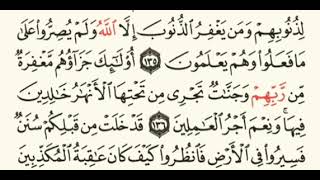 لِذُنُوبِهِمْ وَمَن يَغْفِرُ ٱلذُّنُوبَ إِلَّا ٱللَّهُ وَلَمْ يُصِرُّوا۟ عَلَىٰ
مَا فَعَلُوا۟ وَهُمْ يَعْلَمُونَ ١٣٥ أُو۟لَٰٓئِكَ جَزَآؤُهُم مَّغْفِرَةٌ
مِّن رَّبِّهِمْ وَجَنَّٰتٌ تَجْرِى مِن تَحْتِهَا ٱلْأَنْهَٰرُ خَٰلِدِينَ
فِيهَا ۚ وَنِعْمَ أَجْرُ ٱلْعَٰمِلِينَ ١٣٦ قَدْ خَلَتْ مِن قَبْلِكُمْ سُنَنٌ
فَسِيرُوا۟ فِى ٱلْأَرْضِ فَٱنظُرُوا۟ كَيْفَ كَانَ عَٰقِبَةُ ٱلْمُكَذِّبِينَ